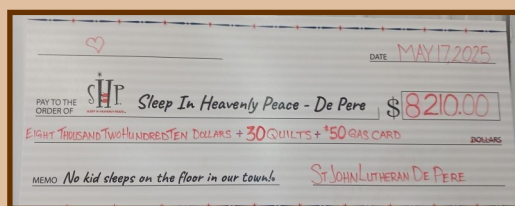 DATE MAY 17, 2025
PAY TO THE ORDER OF SHP Sleep In Heavenly Peace - De Pere $8210.00
EIGHT THOUSAND TWO HUNDRED TEN DOLLARS + 30 QUILTS + $50 GAS CARD DOLLARS
MEMO No kid sleeps on the floor in our town!® ST JOHN LUTHERAN DE PERE